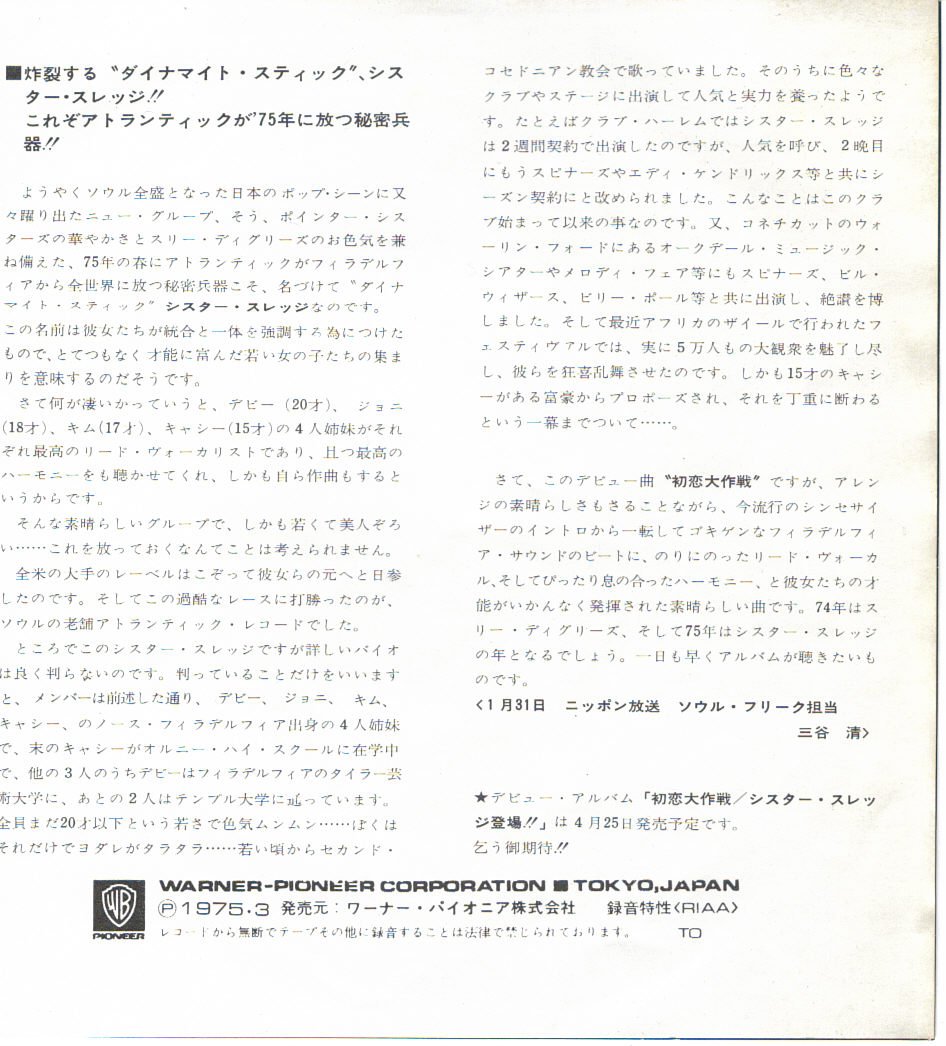 ■炸裂する〝ダイナマイト・スティック〟、シス
ター・スレッジ!!
これぞアトランティックが'75年に放つ秘密兵
器!!
ようやくソウル全盛となった日本のポップ・シーンに又
々躍り出たニュー・グループ、そう、ポインター・シス
ターズの華やかさとスリー・ディグリーズのお色気を兼
ね備えた、75年の春にアトランティックがフィラデルフ
ィアから全世界に放つ秘密兵器こそ、名づけて〝ダイナ
マイト・スティック〟シスター・スレッジなのです。
この名前は彼女たちが統合と一体を強調する為につけた
もので、とてつもなく才能に富んだ若い女の子たちの集ま
りを意味するのだそうです。
さて何が凄いかっていうと、デビー(20才)、ジョニ
(18才)、キム(17才)、キャシー(15才)の4人姉妹がそれ
ぞれ最高のリード・ヴォーカリストであり、且つ最高の
ハーモニーをも聴かせてくれ、しかも自ら作曲もすると
いうからです。
そんな素晴らしいグループで、しかも若くて美人ぞろ
い……これを放っておくなんてことは考えられません。
全米の大手のレーベルはこぞって彼女らの元へと日参
したのです。そしてこの過酷なレースに打勝ったのが、
ソウルの老舗アトランティック・レコードでした。
ところでこのシスター・スレッジですが詳しいバイオ
は良く判らないのです。判っていることだけをいいます
と、メンバーは前述した通り、デビー、ジョニ、キム、
キャシー、のノース・フィラデルフィア出身の4人姉妹
で、末のキャシーがオルニー・ハイ・スクールに在学中
で、他の3人のうちデビーはフィラデルフィアのタイラー芸
術大学に、あとの2人はテンプル大学に通っています。
全員まだ20才以下という若さで色気ムンムン……ぼくは
それだけでヨダレがタラタラ……若い頃からセカンド・
コセドニアン教会で歌っていました。そのうちに色々な
クラブやステージに出演して人気と実力を養ったようで
す。たとえばクラブ・ハーレムではシスター・スレッジ
は2週間契約で出演したのですが、人気を呼び、2晩目
にもうスピナーズやエディ・ケンドリックス等と共にシ
ーズン契約にと改められました。こんなことはこのクラ
ブ始まって以来の事なのです。又、コネチカットのウォ
ーリン・フォードにあるオークデール・ミュージック・
シアターやメロディ・フェア等にもスピナーズ、ビル・
ウィザース、ビリー・ポール等と共に出演し、絶讃を博
しました。そして最近アフリカのザイールで行われたフ
ェスティヴァルでは、実に5万人もの大観衆を魅了し尽
し、彼らを狂喜乱舞させたのです。しかも15才のキャシ
ーがある富豪からプロポーズされ、それを丁重に断わる
という一幕までついて……。
さて、このデビュー曲〝初恋大作戦〟ですが、アレン
ジの素晴らしさもさることながら、今流行のシンセサイ
ザーのイントロから一転してゴキゲンなフィラデルフィ
ア・サウンドのビートに、のりにのったリード・ヴォーカ
ル、そしてぴったり息の合ったハーモニー、と彼女たちの才
能がいかんなく発揮された素晴らしい曲です。74年はス
リー・ディグリーズ、そして75年はシスター・スレッジ
の年となるでしょう。一日も早くアルバムが聴きたいも
のです。
<1月31日 ニッポン放送 ソウル・フリーク担当
三谷 清>
★デビュー・アルバム「初恋大作戦/シスター・スレッ
ジ登場!!」は4月25日発売予定です。
乞う御期待!!
WB
PIONEER
WARNER-PIONEER CORPORATION ■ TOKYO,JAPAN
Ⓟ1975・3 発売元:ワーナー・パイオニア株式会社 録音特性<RIAA>
レコードから無断でテープその他に録音することは法律で禁じられております。 TO